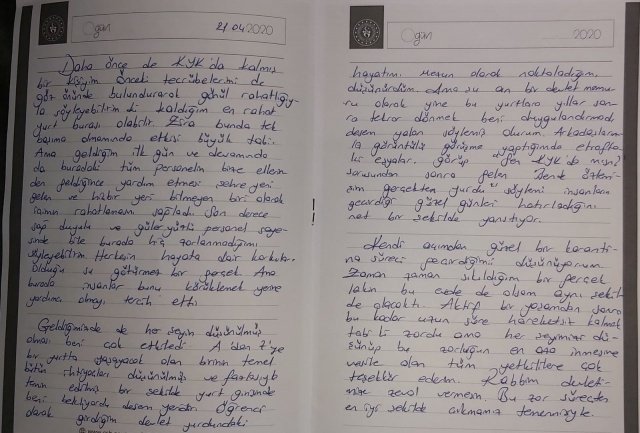 gün
21.04.2020
Daha önce de KYK'da kalmış
bir kişiyim önceki tecrübelerimi de
göz önünde bulundurarak gönül rahatlığıy-
la söyleyebilirim ki kaldığım en rahat
yurt burası olabilir. Zira bunda tek
başıma olmamında etkisi büyük tabi.
Ama geldiğim ilk gün ve devamında
da buradaki tüm personelin bize ellerin-
den geldiğince yardım etmesi şehre yeni
gelen ve hiçbir yeri bilmeyen biri olarak
içimin rahatlamasını sağladı. Son derece
sağ duyulu ve güler yüzlü personel saye-
sinde bile burada hiç zorlanmadığımı
söyleyebilirim. Herkesin hayata dair korkuları
olduğu su götürmez bir gerçek. Ama
burada insanlar bunu körüklemek yerine
yardımcı olmayı tercih etti.
Geldiğimizde de her şeyin düşünülmüş
olması beni çok etkiledi. A'dan Z'ye
bir yurtta yaşayacak olan birinin temel
bütün ihtiyaçları düşünülmüş ve fazlasıyla
temin edilmiş bir şekilde yurt girişinde
beni bekliyordu desem yeridir. Öğrenci
olarak girdiğim devlet yurdundaki
gün
2020
hayatımı mezun olarak noktaladığımı
düşünürdüm. Ama şu an bir devlet memu-
ru olarak yine bu yurtlara yıllar son-
ra tekrar dönmek beni duygulandırmadı
desem yalan söylemiş olurum. Arkadaşlarım-
la görüntülü görüşme yaptığımda etrafta-
ki eşyaları görüp "Sen KYK'da mısın?"
sorusundan sonra gelen
gerçekten yurdu" söylemi insanların
geçirdiği güzel günleri hatırladığını
net bir şekilde yansıtıyor.
Kendi açımdan güzel bir karanti-
na süreci geçirdiğimi düşünüyorum.
Zaman zaman sıkıldığım bir gerçek
lakin bu evde de olsam aynı şekil-
de olacaktı. Aktif bir yaşamdan sonra
bu kadar uzun süre hareketsiz kalmak
tabi ki zordu ama her şeyimizi dü-
şünüp bu zorluğun en aza inmesine
vesile olan tüm yetkililere çok
teşekkür ederim. Rabbim devleti-
mize zeval vermesin. Bu zor süreçten
en iyi şekilde çıkmamız temennisiyle.